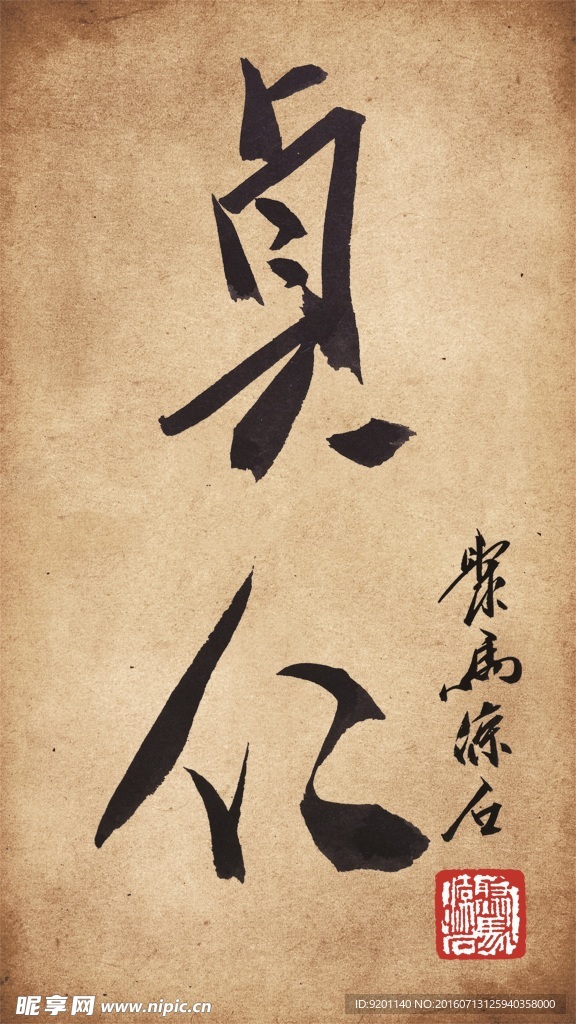 貞仁
聚馬凉石
昵享网 www.nipic.cn
ID:9201140 NO:20160713125940358000